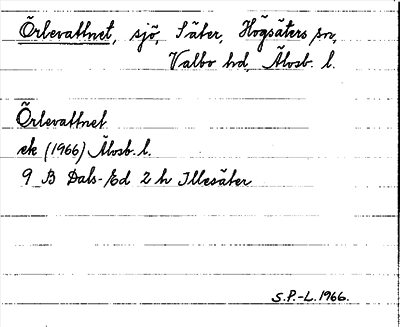 Örlevattnet, sjö, Säter, Högsäters sn,
Valbo hd, Älvsb. l.
Örlevattnet
ek (1966) Älvsb. l.
9 B Dals-Ed 2 h Illesäter
S.P.-L. 1966.